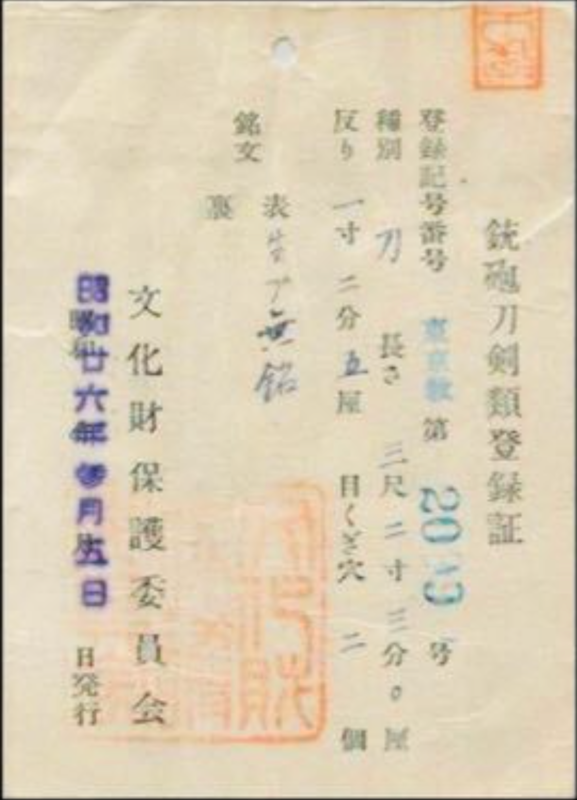 銃砲刀剣類登録証
登録記号番号 東京教 第 号
種別 刀 長さ 三尺 二寸 三分 0厘
反り 一寸 二分 五厘 目くぎ穴 二 個
銘文 表 生ブ無銘
裏
文化財保護委員会
昭和廿六年 月五日 日発行